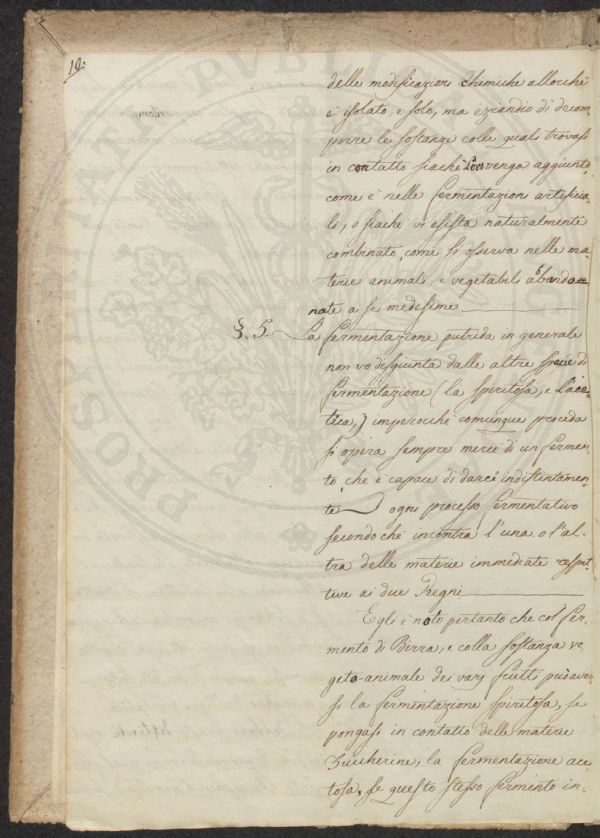 12.
delle modificazioni chemiche allorchè
è isolato, e solo, ma eziandio di decom
porre le sostanze colle quali trovasi
in contatto siachè Loro venga aggiunto,
come è nelle fermentazioni artificia
li, o siachè vi esista naturalmente
combinato, come si osserva nelle ma
terie animali, e vegetabili abbando=
nate a se medesime
§. 5. La fermentazione putrida in generale
non va disgiunta dalle altre specie di
fermentazione (la spiritosa, e l'ace=
tica,) imperocchè comunque proceda
si opera sempre mercè di un fermen=
to, che è capace di darci indistintamen=
te ogni processo fermentativo
secondo chè incontra l'una, o l'al
tra delle materie immediate respet=
tive ai due Regni
Egli è noto pertanto che col fer=
mento di Birra, e colla sostanza ve
geto-animale dei varj frutti può aver
si la fermentazione spiritosa, se
pongasi in contatto delle materie
Zuccherine, la fermentazione ace
tosa, se questo stesso fermento in-
PROSPERITATI PUBLICAE